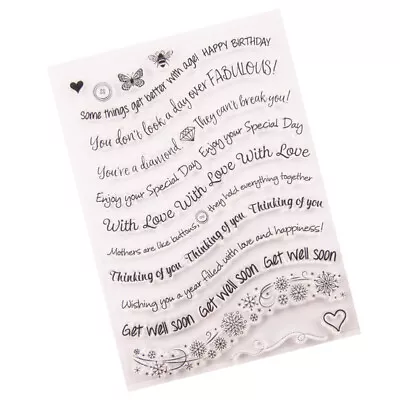 HAPPY BIRTHDAY
Some things get better with age!
You don't look a day over FABULOUS!
You're a diamond They can't break you!
Enjoy your Special Day Enjoy your Special Day
With Love With Love With Love
Mothers are like buttons, they hold everything together
Thinking of you Thinking of you Thinking of you
Wishing you a year filled with love and happiness!
Get Well Soon Get Well Soon Get Well Soon